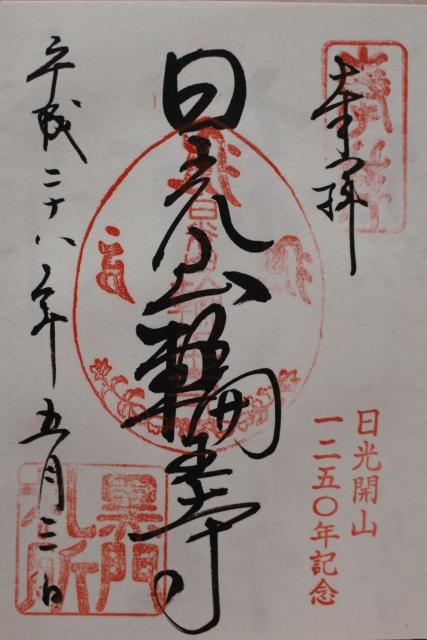 奉拝
奉拝
日光山輪王寺
日光開山
一二五〇年記念
平成二十八年五月三日
黒門
札所